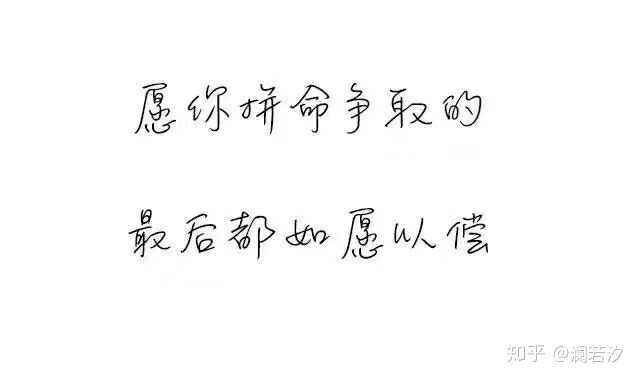 愿你拼命争取的
最后都如愿以偿
知乎 @澜若汐